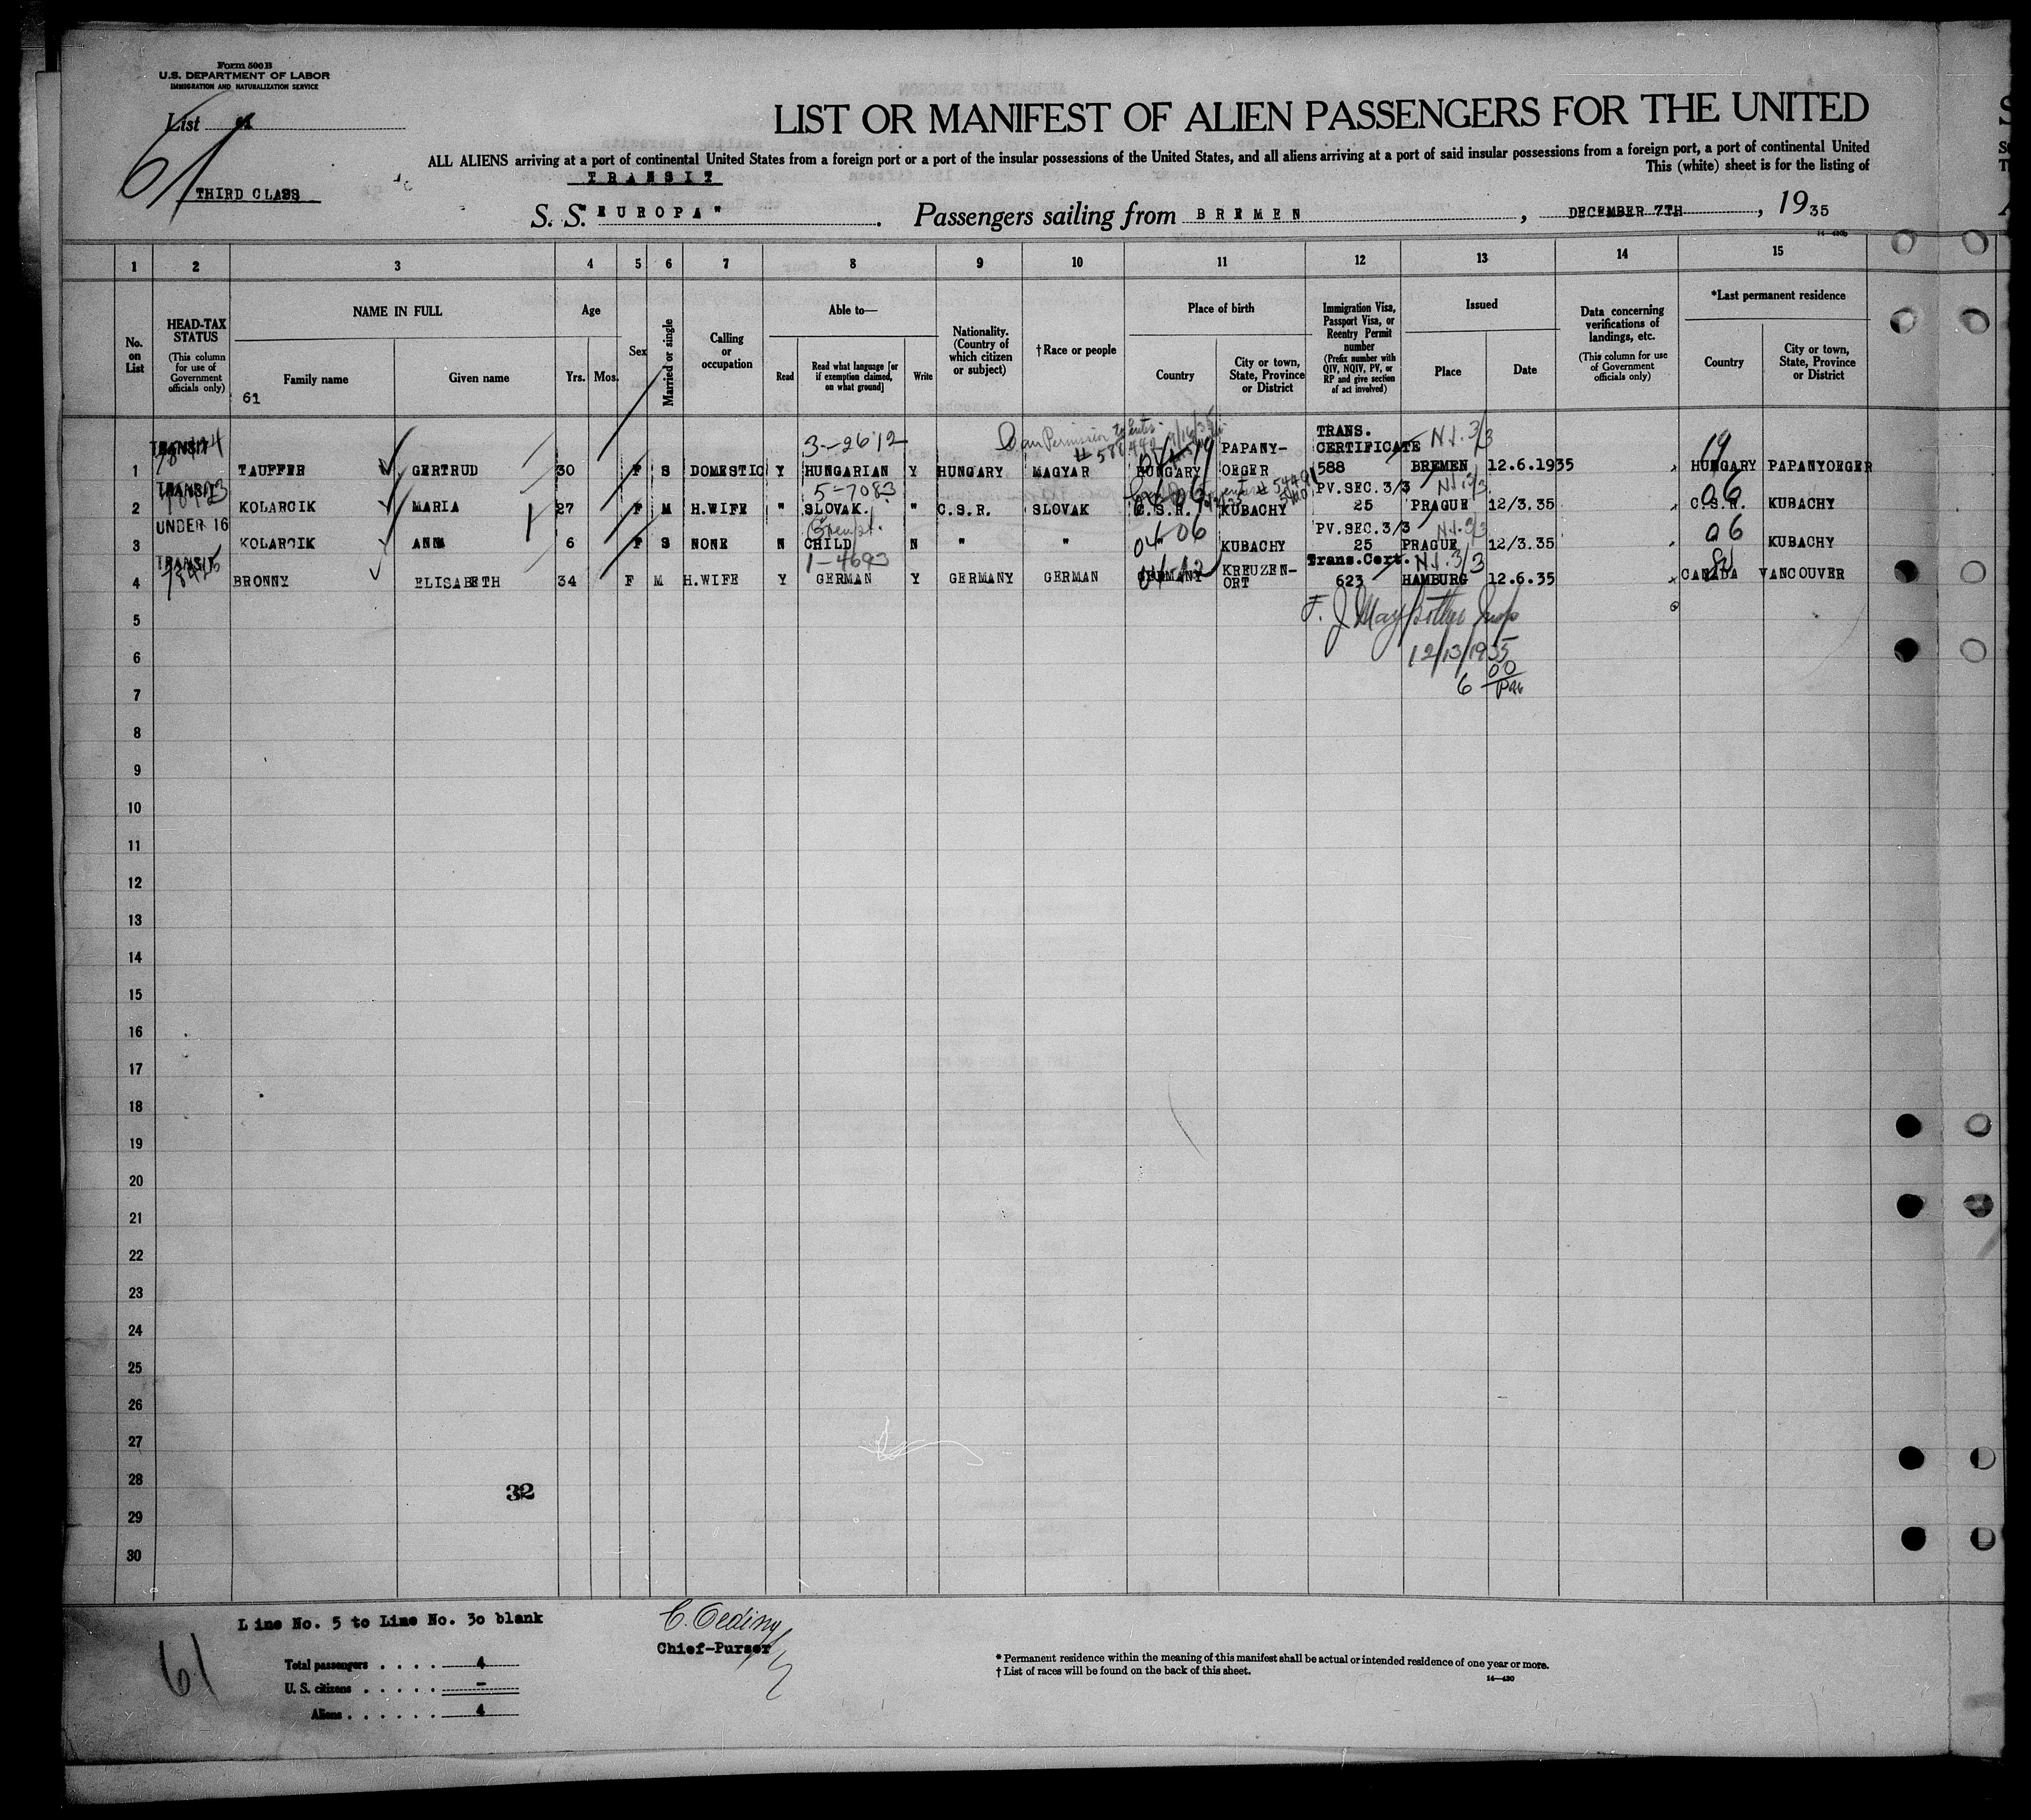 Form 500 B
U.S. DEPARTMENT OF LABOR
IMMIGRATION AND NATURALIZATION SERVICE
List 61
61
THIRD CLASS
LIST OR MANIFEST OF ALIEN PASSENGERS FOR THE UNITED
ALL ALIENS arriving at a port of continental United States from a foreign port or a port of the insular possessions of the United States, and all aliens arriving at a port of said insular possessions from a foreign port, a port of continental United
This (white) sheet is for the listing of
TRANSIT
S. S. "EUROPA" Passengers sailing from BREMEN, DECEMBER 7TH, 1935
1 2 3 4 5 6 7 8 9 10 11 12 13 14 15
No. on List
HEAD-TAX STATUS (This column for use of Government officials only)
NAME IN FULL
Family name
Given name
61
Age
Yrs. Mos.
Sex
Married or single
Calling or occupation
Able to—
Read
Read what language [or if exemption claimed, on what ground]
Write
Nationality. (Country of which citizen or subject)
†Race or people
Place of birth
Country
City or town, State, Province or District
Immigration Visa, Passport Visa, or Reentry Permit number (Prefix number with QIV, NQIV, PV, or RP and give section of act involved)
Issued
Place
Date
Data concerning verifications of landings, etc. (This column for use of Government officials only)
*Last permanent residence
Country
City or town, State, Province or District
TRANSIT 3-2612 PAPANY- TRANS. CERTIFICATE N.I. 3/3 19
1 TAUFFER GERTRUD 30 F S DOMESTIC Y HUNGARIAN Y HUNGARY MAGYAR HUNGARY OEGER 588 BREMEN 12.6.1935 HUNGARY PAPANYOEGER
TRANSIT 5-7083 PV.SEC.3/3 N.I. 3/3 06
2 KOLARCIK MARIA 27 F M H.WIFE " SLOVAK. " C.S.R. SLOVAK C.S.R. KUBACHY 25 PRAGUE 12/3.35 C.S.R. KUBACHY
UNDER 16 Exempt. 04-06 PV.SEC.3/3 N.I. 3/3 06
3 KOLARCIK ANNA 6 F S NONE N CHILD N " " " KUBACHY 25 PRAGUE 12/3.35 KUBACHY
TRANSIT 1-4693 KREUZEN- Trans.Cert. N.I. 3/3
4 BRONNY ELISABETH 34 F M H.WIFE Y GERMAN Y GERMANY GERMAN GERMANY ORT 623 HAMBURG 12.6.35 CANADA VANCOUVER
5
6 12/13/1935
7 6 00 PM
8
9
10
11
12
13
14
15
16
17
18
19
20
21
22
23
24
25
26
27
28
32
29
30
Line No. 5 to Line No. 30 blank
Chief-Purser
61
Total passengers . . . . 4
U. S. citizens . . . . . -
Aliens . . . . . . 4
* Permanent residence within the meaning of this manifest shall be actual or intended residence of one year or more.
† List of races will be found on the back of this sheet.
14—430